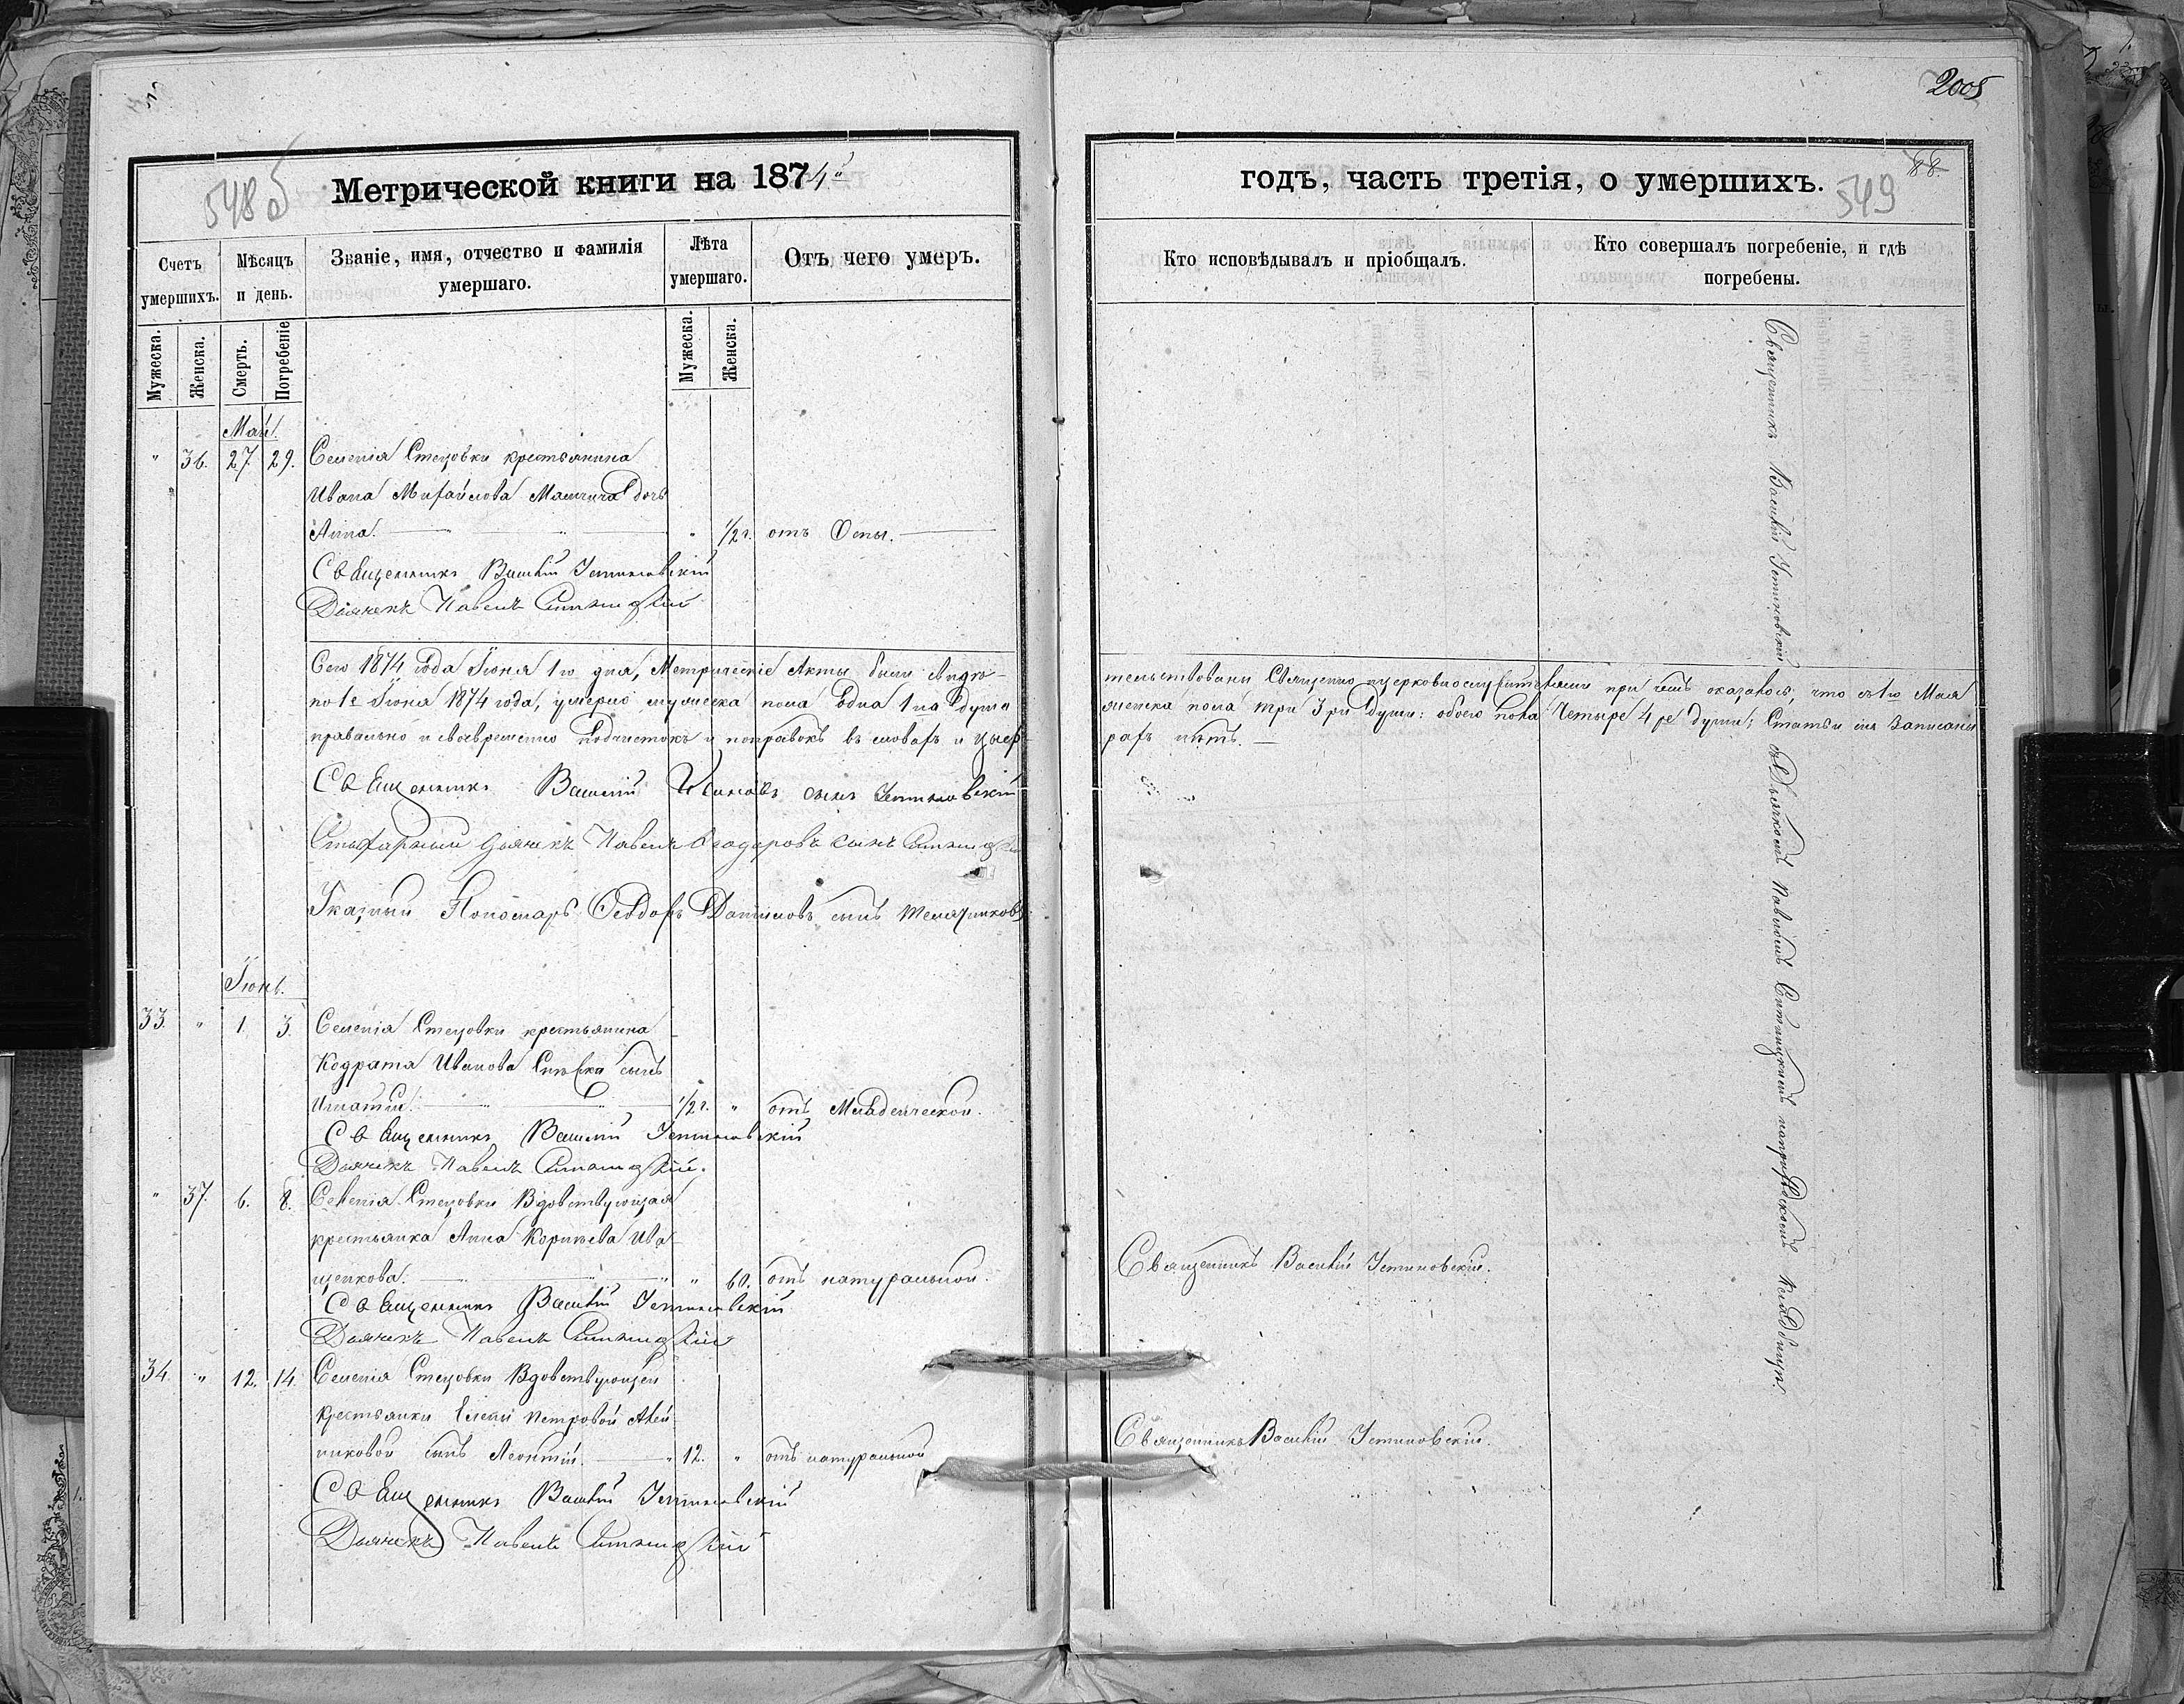 548б
Метрической книги на 1874й
Счетъ умершихъ.
Мѣсяцъ и день.
Званіе, имя, отчество и фамилія умершаго.
Лѣта умершаго.
Отъ чего умеръ.
Мужеска.
Женска.
Смерть.
Погребеніе
Мужеска.
Женска.
Май.
" 36. 27. 29. Селенія Стецовки крестьянина
Ивана Михайлова дочь
Анна. " 1/2 г. отъ Оспы.
Священникъ Василій Устиновскій
Дьячекъ Павелъ
Сего 1874 года Іюня 1го дня, Метрическіе Акты были свидѣ-
по 1е Іюня 1874 года, умерло мужеска пола одна 1на душа
правильно и своевременно подчистокъ и поправокъ въ словахъ и цыф-
Священникъ Василій сынъ Устиновскій
дьячекъ Павелъ Феодоровъ сынъ
Указный Пономарь Ѳеодоръ Даниловъ сынъ
Іюнь.
33. " 1. 3. Селенія Стецовки крестьянина
Кодрата Иванова сынъ
Игнатій. 1/2 г. " отъ Младенческой.
Священникъ Василій Устиновскій
Дьячекъ Павелъ
" 37. 6. 8. Селенія Стецовки Вдовствующая
крестьянка Анна Корнѣева Ива-
щенкова. " 60. отъ натуральной.
Священникъ Василій Устиновскій
Дьячекъ Павелъ
34. " 12. 14. Селенія Стецовки Вдовствующей
крестьянки Елены Петровой Алей-
никовой сынъ Леонтій. 12. " отъ натуральной
Священникъ Василій Устиновскій
Дьячекъ Павелъ
2005
88.
годъ, часть третія, о умершихъ.
549
Кто исповѣдывалъ и пріобщалъ.
Кто совершалъ погребеніе, и гдѣ погребены.
тельствованы Священно церковнослужителями при чемъ оказалось, что съ 1го Мая
женска пола три 3ри души: обоего пола Четыре 4ре души; Статьи сіи записаны
рахъ нѣтъ.
Священникъ Василій Устиновскій.
Священникъ Василій Устиновскій.
Священникъ Василій Устиновскій съ Дьячкомъ Павломъ на приходскомъ кладбищѣ.